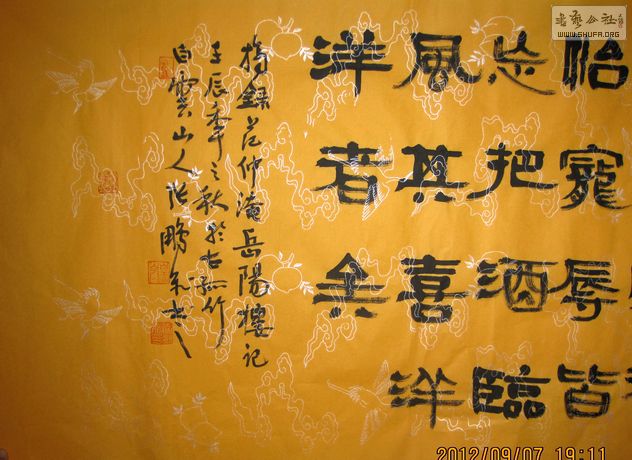 書藝公社
WWW.SHUFA.ORG
怡寵辱皆
忘把酒臨
風其喜洋
洋者矣
摘錄范仲淹岳陽樓記
壬辰年之秋於古竹
白雲山人張鵬書
2012/09/07 19:11